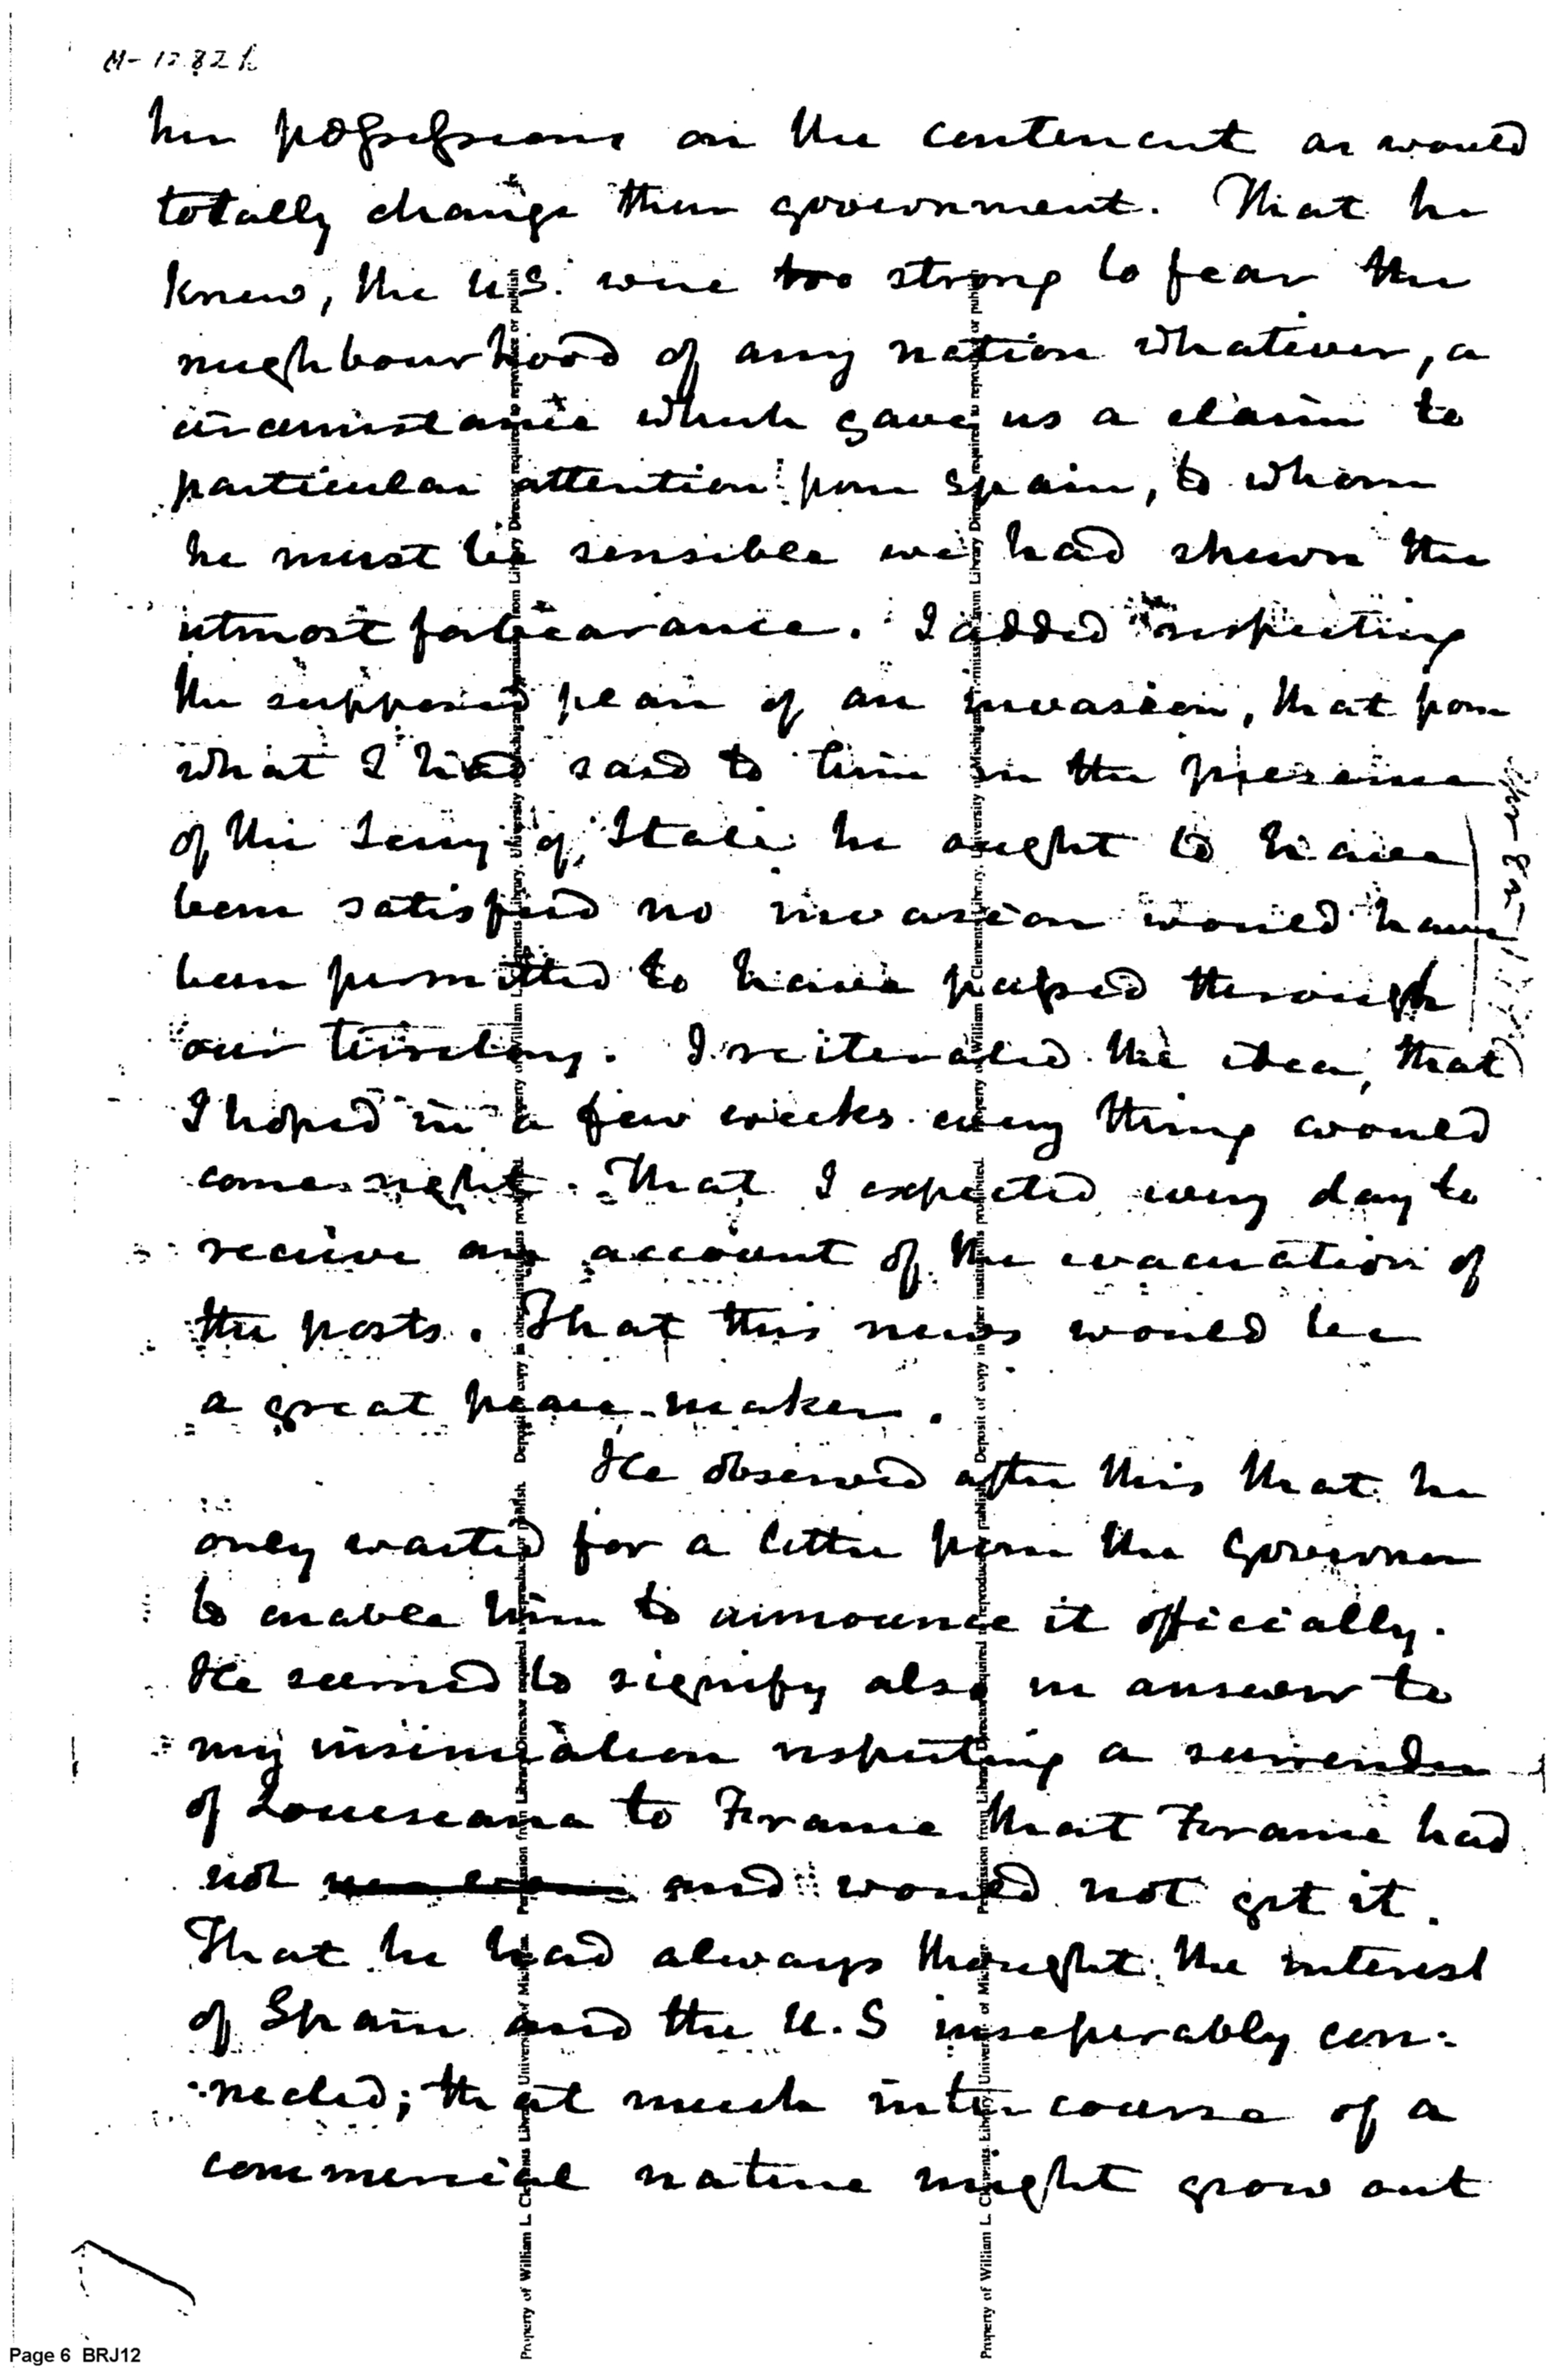 M-1282 b
her possessions on the contenent as would
totally change their government. That he
knew, the U.S. were too strong to fear the
neighbourhood of any nation whatever, a
circumstance which gave us a claim to
particular attention from Spain, to whom
he must be sensible we had shewn the
utmost forbearance. I added respecting
the supposed plan of an invasion, that from
what I had said to him in the presence
of the Secry of State he ought to have
been satisfied no invasion would have
been permitted to have passed through
our territory. I reiterated the idea, that
I hoped in a few weeks every thing would
come right. That I expected every day to
receive an account of the evacuation of
the posts. That this news would be
a great peace-maker.
He observed after this that he
only waited for a letter from the Governor
to enable him to announce it officially.
He seemed to signify also in answer to
my insinuation respecting a surrender
of Louiseana to France that France had
not and would not get it.
That he had always thought the interest
of Spain and the U.S inseperably con-
nected; that much intercourse of a
commercial nature might grow out
Property of William L. Clements Library, University of Michigan. Permission from Library Director required to reproduce or publish. Deposit of copy in other institutions prohibited.
Property of William L. Clements Library, University of Michigan. Permission from Library Director required to reproduce or publish. Deposit of copy in other institutions prohibited.
Page 6 BRJ12